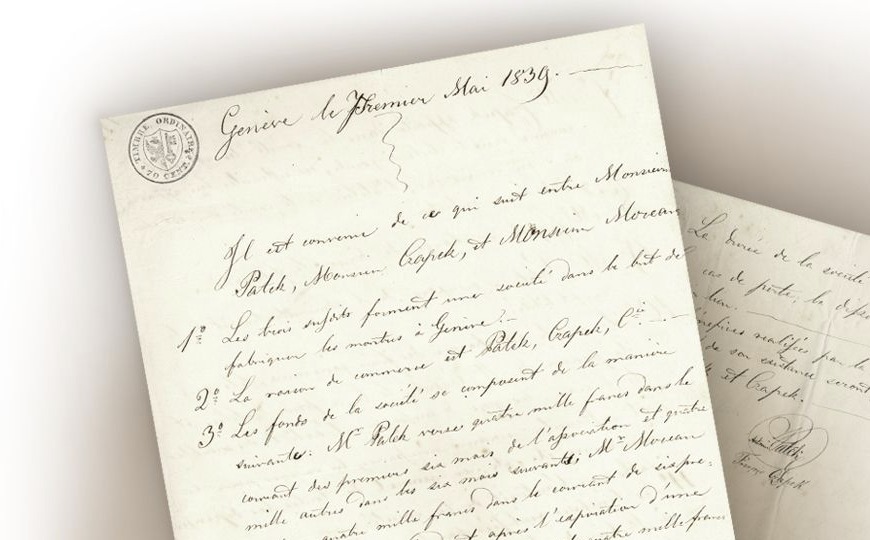 TIMBRE ORDINAIRE
70 CENT.
Genève le Premier Mai 1839.
Il est convenu de ce qui suit entre Monsieur
Patek, Monsieur Czapek, et Monsieur Moreau
1º Les trois susdits forment une société dans le but de
fabriquer les montres à Genève.
2º La raison de commerce est Patek, Czapek, Cie.
3º Les fonds de la société se composent de la manière
suivante: Mr Patek verse quatre mille francs dans le
courant des premiers six mois de l'association et quatre
mille autres dans les six mois suivants; Mr Moreau
quatre mille francs dans le courant de six pre-
et après l'expiration d'une
quatre mille francs
La durée de la société
cas de perte, le
lieu.
réalisés par la
de son existence seront
et Czapek.
Patek
Czapek